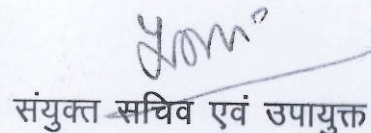 संयुक्त सचिव एवं उपायुक्त